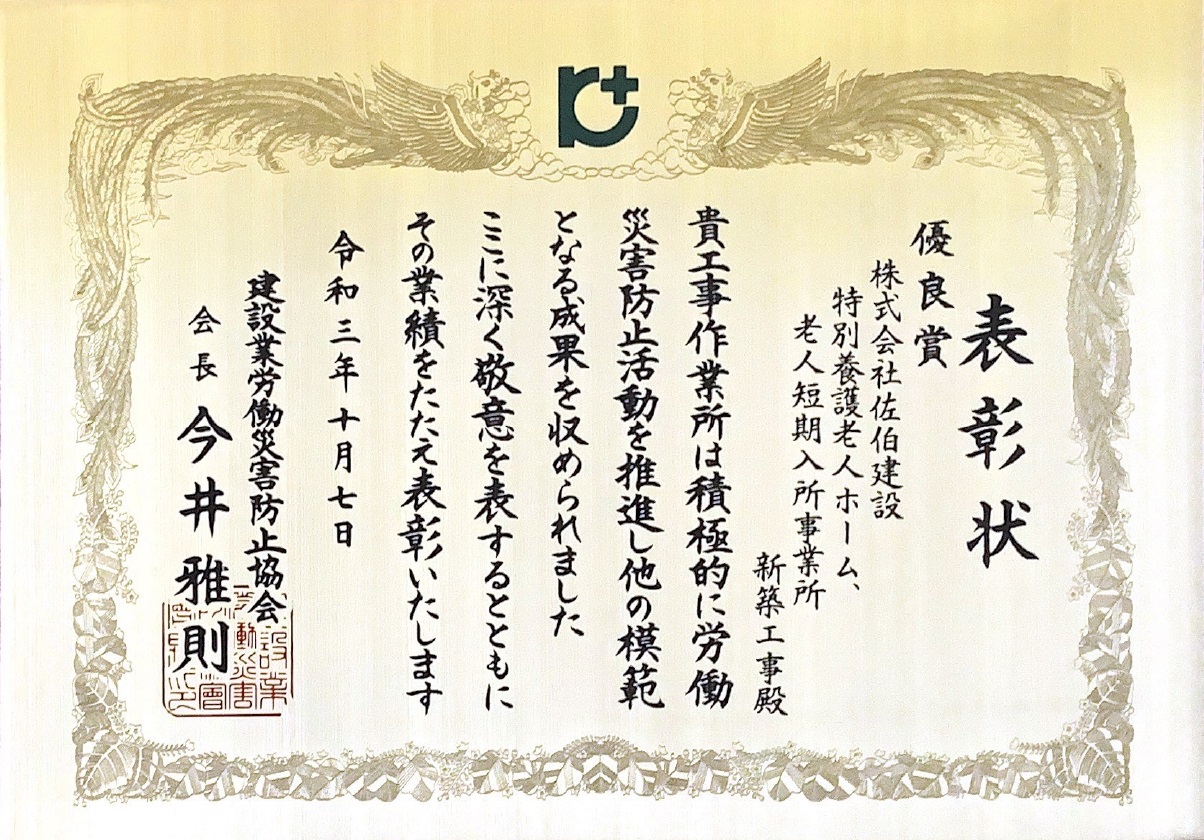 表彰状
優良賞
株式会社佐伯建設
特別養護老人ホーム、
老人短期入所事業所
新築工事殿
貴工事作業所は積極的に労働
災害防止活動を推進し他の模範
となる成果を収められました
ここに深く敬意を表するとともに
その業績をたたえ表彰いたします
令和三年十月七日
建設業労働災害防止協会
会長 今井雅則